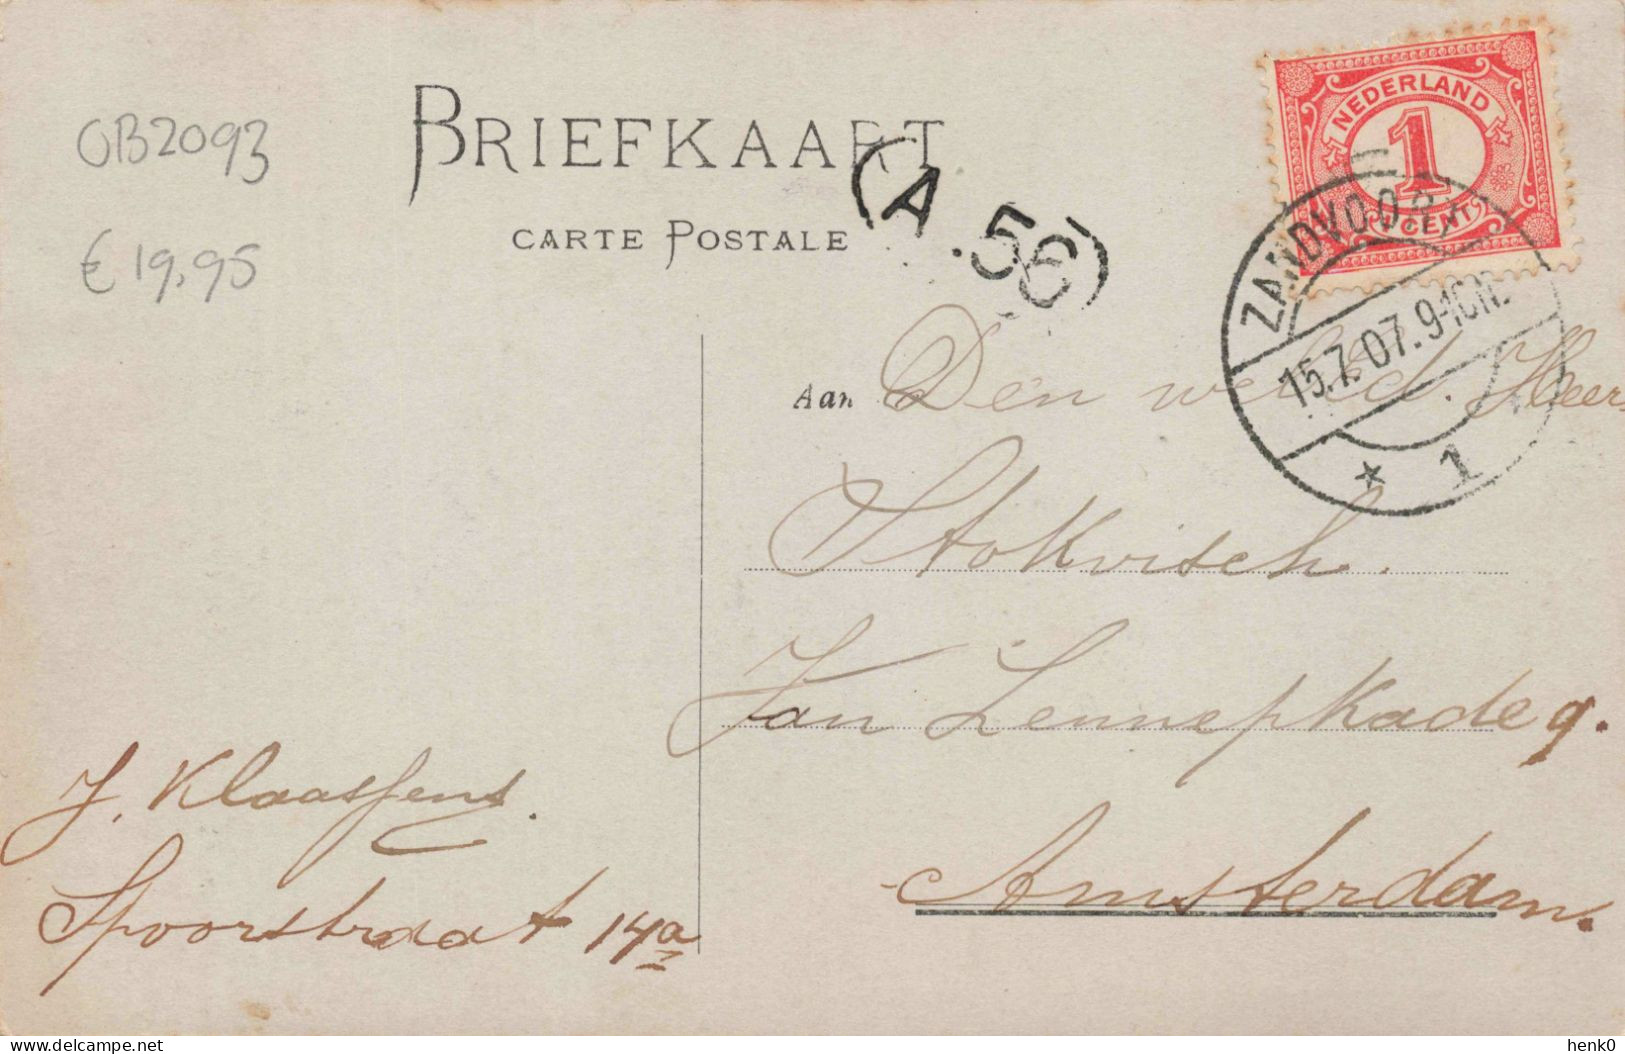 OB2093
€ 19,95
BRIEFKAART
CARTE POSTALE
(A.56)
NEDERLAND
1
1 CENT
ZANDVOORT
15.7.07.9-10N.
★ 1
Aan Den weled. Heer
Stokvisch.
Jan Lennepkade 9.
Amsterdam.
J. Klaassens.
Spoorstraat 14a
delcampe.net
henk0